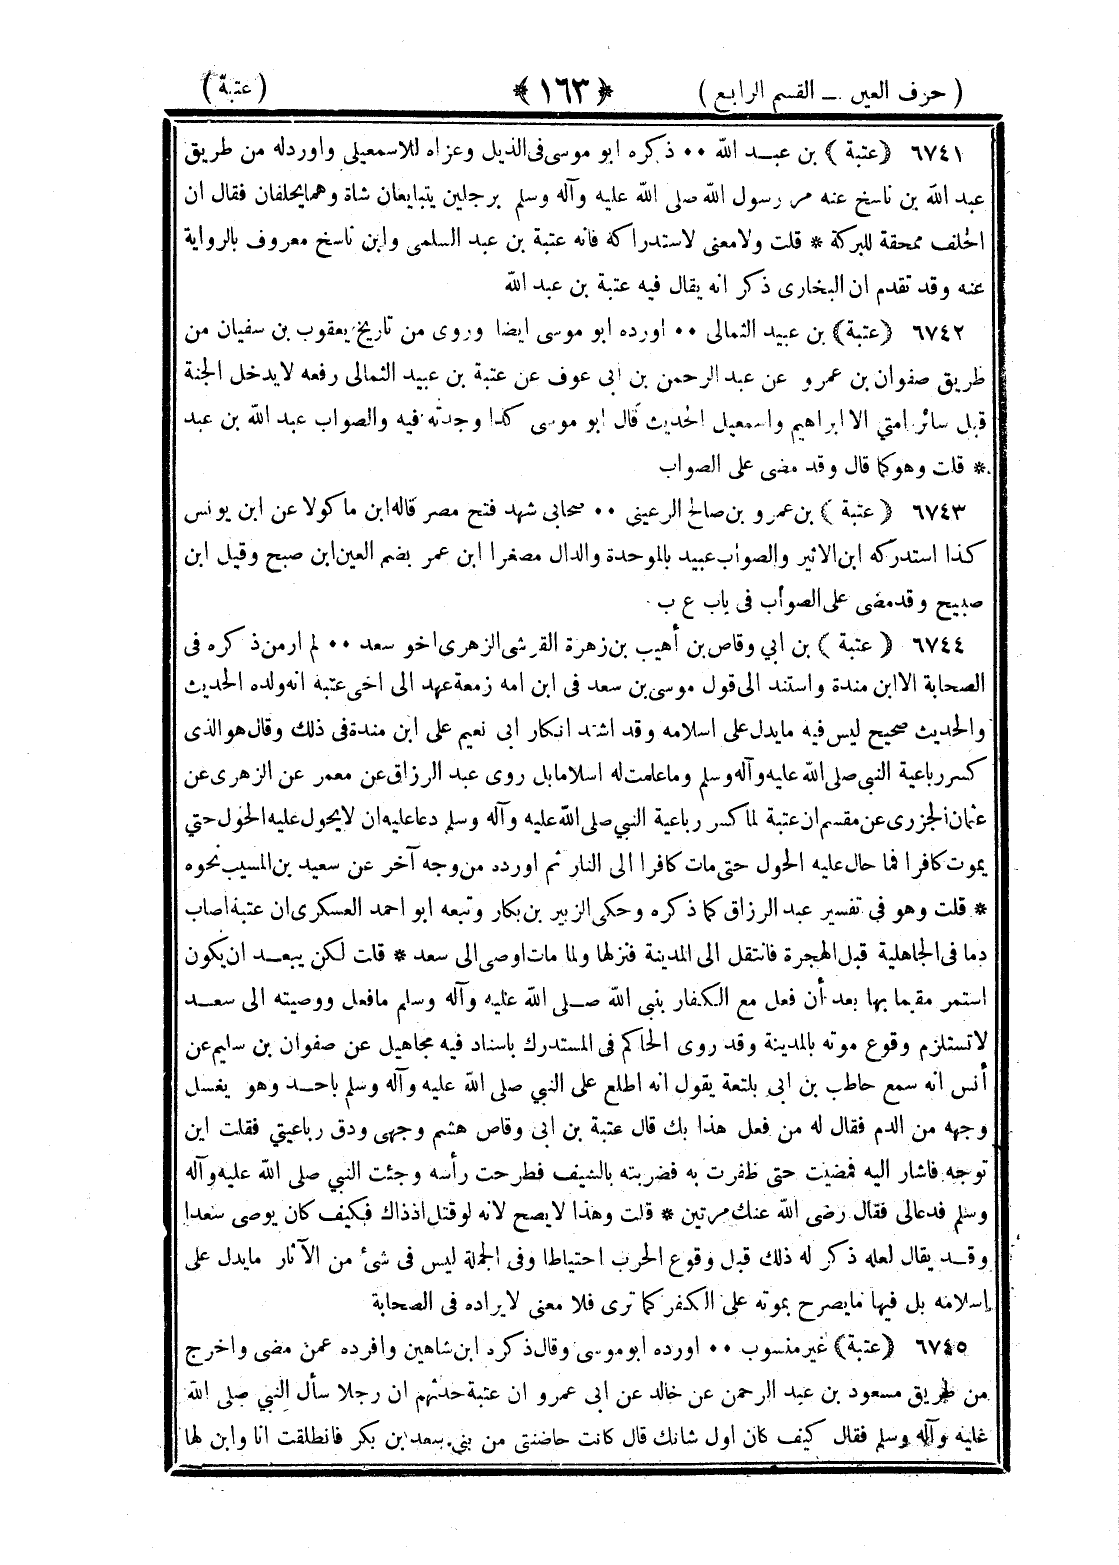 ( حرف العين ـ القسم الرابع ) ﴿ ١٦٣ ﴾ ( عتبة )
٦٧٤١ ﴿عتبة﴾ بن عبد الله ٠٠ ذكره ابو موسى فى الذيل وعزاه للاسمعيلى واورد له من طريق
عبد الله بن ناسخ عنه مر رسول الله صلى الله عليه وآله وسلم برجلين يتبايعان شاة وهما يحلفان فقال ان
الحلف ممحقة للبركة * قلت ولا معنى لاستدراكه فانه عتبة بن عبد السلمى وابن ناسخ معروف بالرواية
عنه وقد تقدم ان البخارى ذكر انه يقال فيه عتبة بن عبد الله
٦٧٤٢ ﴿عتبة﴾ بن عبيد الثمالى ٠٠ اورده ابو موسى ايضا وروى من تاريخ يعقوب بن سفيان من
طريق صفوان بن عمرو عن عبد الرحمن بن ابى عوف عن عتبة بن عبيد الثمالى رفعه لا يدخل الجنة
قبل سائر امتي الا ابراهيم واسمعيل الحديث قال ابو موسى كذا وجدته فيه والصواب عبد الله بن عبد
* قلت وهو كما قال وقد مضى على الصواب
٦٧٤٣ ﴿ عتبة ﴾ بن عمرو بن صالح الرعينى ٠٠ صحابى شهد فتح مصر قاله ابن ماكولا عن ابن يونس
كذا استدركه ابن الاثير والصواب عبيد بالموحدة والدال مصغرا ابن عمر بضم العين ابن صبح وقيل ابن
صبيح وقد مضى على الصوأب فى باب ع ب
٦٧٤٤ ﴿ عتبة ﴾ بن أبي وقاص بن أهيب بن زهرة القرشى الزهرى اخو سعد ٠٠ لم ار من ذكره فى
الصحابة الا ابن مندة واستند الى قول موسى بن سعد فى ابن امه زمعة عهد الى اخى عتبة انه ولده الحديث
والحديث صحيح ليس فيه ما يدل على اسلامه وقد اشتد انكار ابى نعيم على ابن مندة فى ذلك وقال هو الذى
كسر رباعية النبى صلى الله عليه وآله وسلم وما علمت له اسلاما بل روى عبد الرزاق عن معمر عن الزهرى عن
عثمان الجزرى عن مقسم ان عتبة لما كسر رباعية النبي صلى الله عليه وآله وسلم دعا عليه ان لا يحول عليه الحول حتي
يموت كافرا فما حال عليه الحول حتى مات كافرا الى النار ثم اورده من وجه آخر عن سعيد بن المسيب نحوه
* قلت وهو فى تفسير عبد الرزاق كما ذكره وحكى الزبير بن بكار وتبعه ابو احمد العسكرى ان عتبة اصاب
دما فى الجاهلية قبل الهجرة فانتقل الى المدينة فنزلها ولما مات اوصى الى سعد * قلت لكن يبعد ان يكون
استمر مقيما بها بعد أن فعل مع الكفار بنبى الله صلى الله عليه وآله وسلم ما فعل ووصيته الى سعد
لا تستلزم وقوع موته بالمدينة وقد روى الحاكم فى المستدرك باسناد فيه مجاهيل عن صفوان بن سليم عن
أنس انه سمع حاطب بن ابى بلتعة يقول انه اطلع على النبي صلى الله عليه وآله وسلم باحد وهو يغسل
وجهه من الدم فقال له من فعل هذا بك قال عتبة بن ابى وقاص هشم وجهى ودق رباعيتي فقلت اين
توجه فاشار اليه فمضيت حتى ظفرت به فضربته بالسيف فطرحت رأسه وجئت النبي صلى الله عليه وآله
وسلم فدعالى فقال رضى الله عنك مرتين * قلت وهذا لا يصح لانه لو قتل اذذاك فكيف كان يوصى سعدا
وقد يقال لعله ذكر له ذلك قبل وقوع الحرب احتياطا وفى الجملة ليس فى شئ من الآثار ما يدل على
اسلامه بل فيها ما يصرح بموته على الكفر كما ترى فلا معنى لايراده فى الصحابة
٦٧٤٥ ﴿عتبة﴾ غير منسوب ٠٠ اورده ابو موسى وقال ذكره ابن شاهين وافرده عمن مضى واخرج
من طريق مسعود بن عبد الرحمن عن خالد عن ابى عمرو ان عتبة حدثهم ان رجلا سأل النبي صلى الله
عليه وآله وسلم فقال كيف كان اول شانك قال كانت حاضنتى من بني سعد بن بكر فانطلقت انا وابن لها